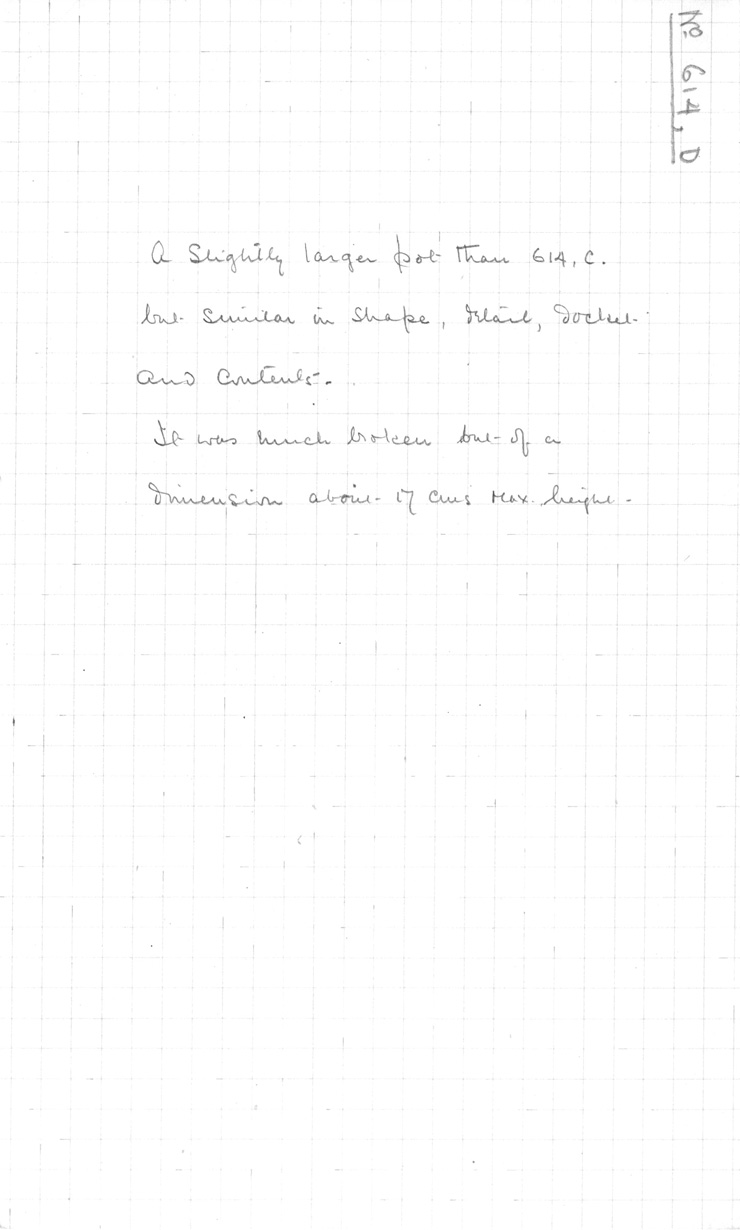 No 614, D
A Slightly larger pot than 614, C.
but similar in shape, detail, docket
and contents.
It was much broken but of a
dimension about 17 cms max. height.